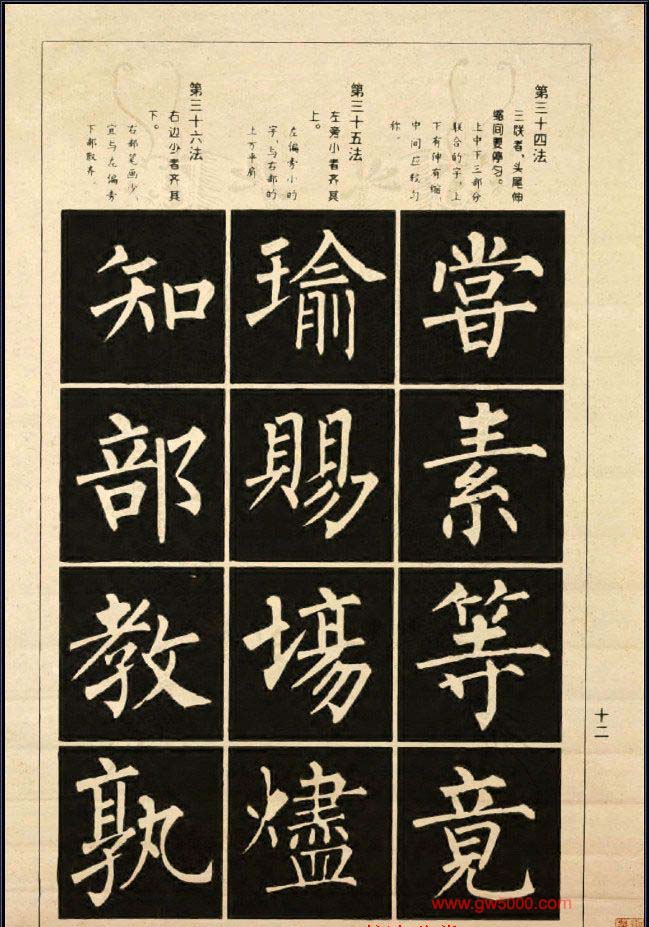 第三十四法
三联者，头尾伸
缩间要停匀。
上中下三部分
联合的字，上
下有伸有缩，
中间较匀
称。
甞
素
等
竟
第三十五法
左旁小者齐其
上。
左偏旁小的
字，与右部的
上方平肩
瑜
賜
塲
燼
第三十六法
右边少者齐其
下。
右部笔画少，
宜与左偏旁
下部取齐．
知
部
教
孰
十二
www.gw5000.com